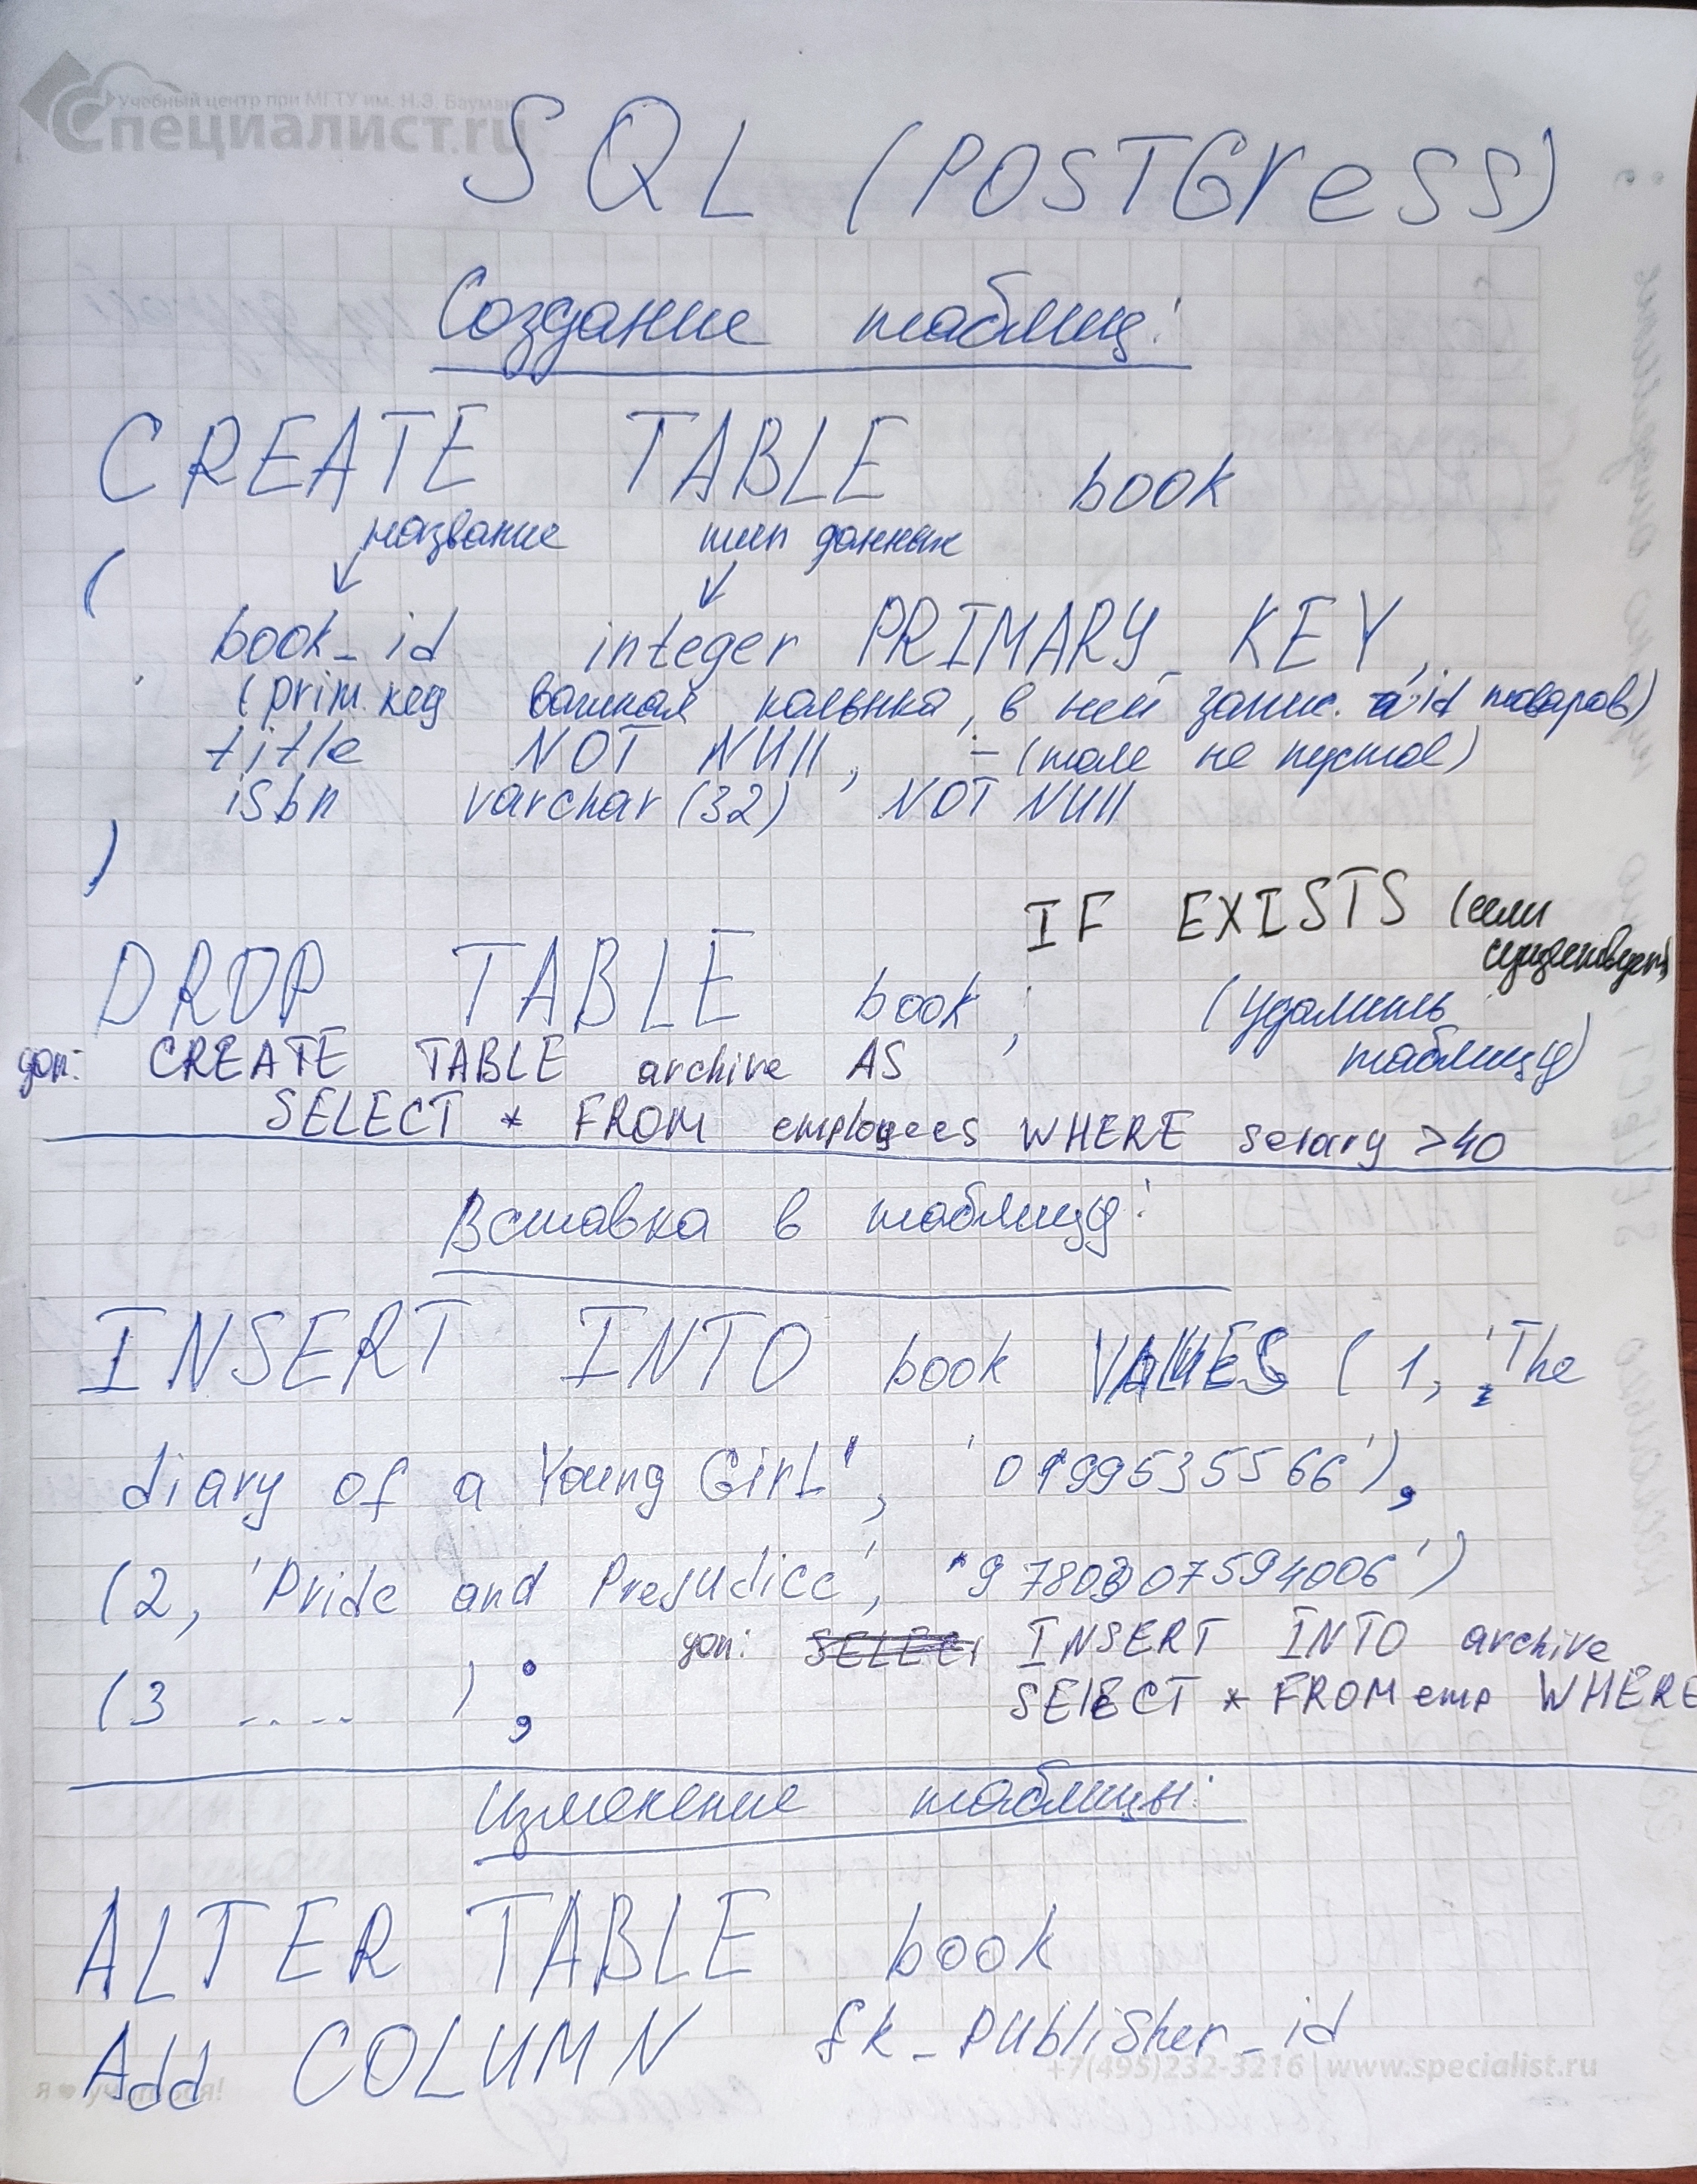 Учебный центр при МГТУ им. Н.Э. Баумана
Специалист.ru
SQL (POSTGress)
Создание таблиц:
CREATE TABLE book
название тип данных
(
book_id integer PRIMARY_KEY,
(prim. key важная колынка, в ней запис. id товаров)
title NOT NUll, - (поле не пустое)
isbn varchar (32), NOT NUll
)
IF EXISTS (если
существует)
DROP TABLE book; (удалить
таблицу)
доп: CREATE TABLE archive AS
SELECT * FROM employees WHERE selary >40
Вставка в таблицу:
INSERT INTO book VALUES (1, 'The
diary of a Young Girl', '0199535566'),
(2, 'Pride and Prejudice', '9780307594006')
доп: INSERT INTO archive
(3 .... );
SElECT * FROM emp WHERE
Изменение таблицы:
ALTER TABLE book
Add COLUMN fk_publisher_id
+7(495)232-3216 | www.specialist.ru
я учиться!